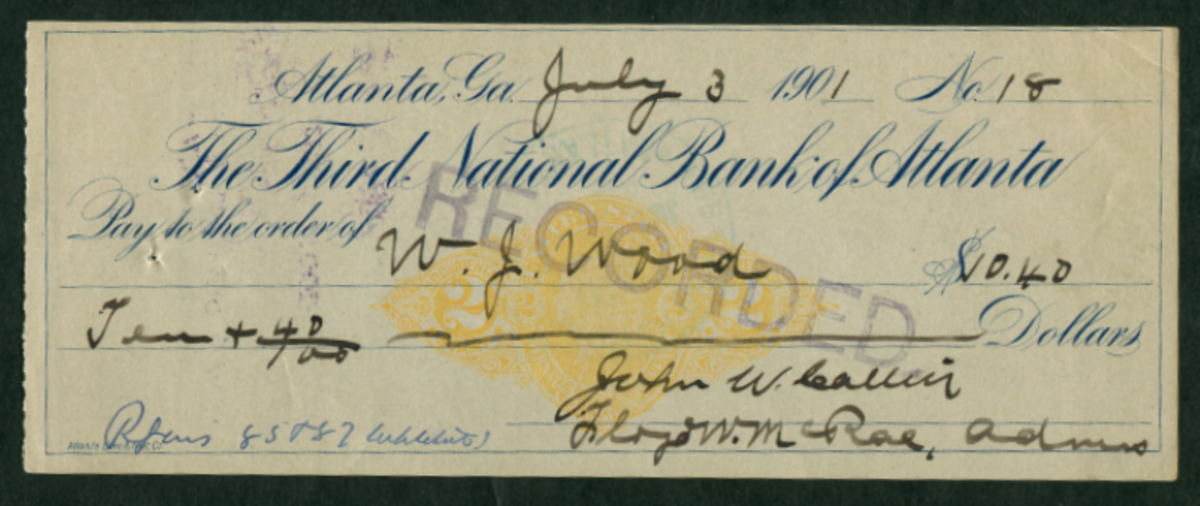 Atlanta, Ga. July 3 1901 No. 18
The Third National Bank of Atlanta
Pay to the order of W. J. Wood $10.40
RECORDED
2 2
Ten + 40/100 Dollars
John W.
Floyd W. McRae, Admrs